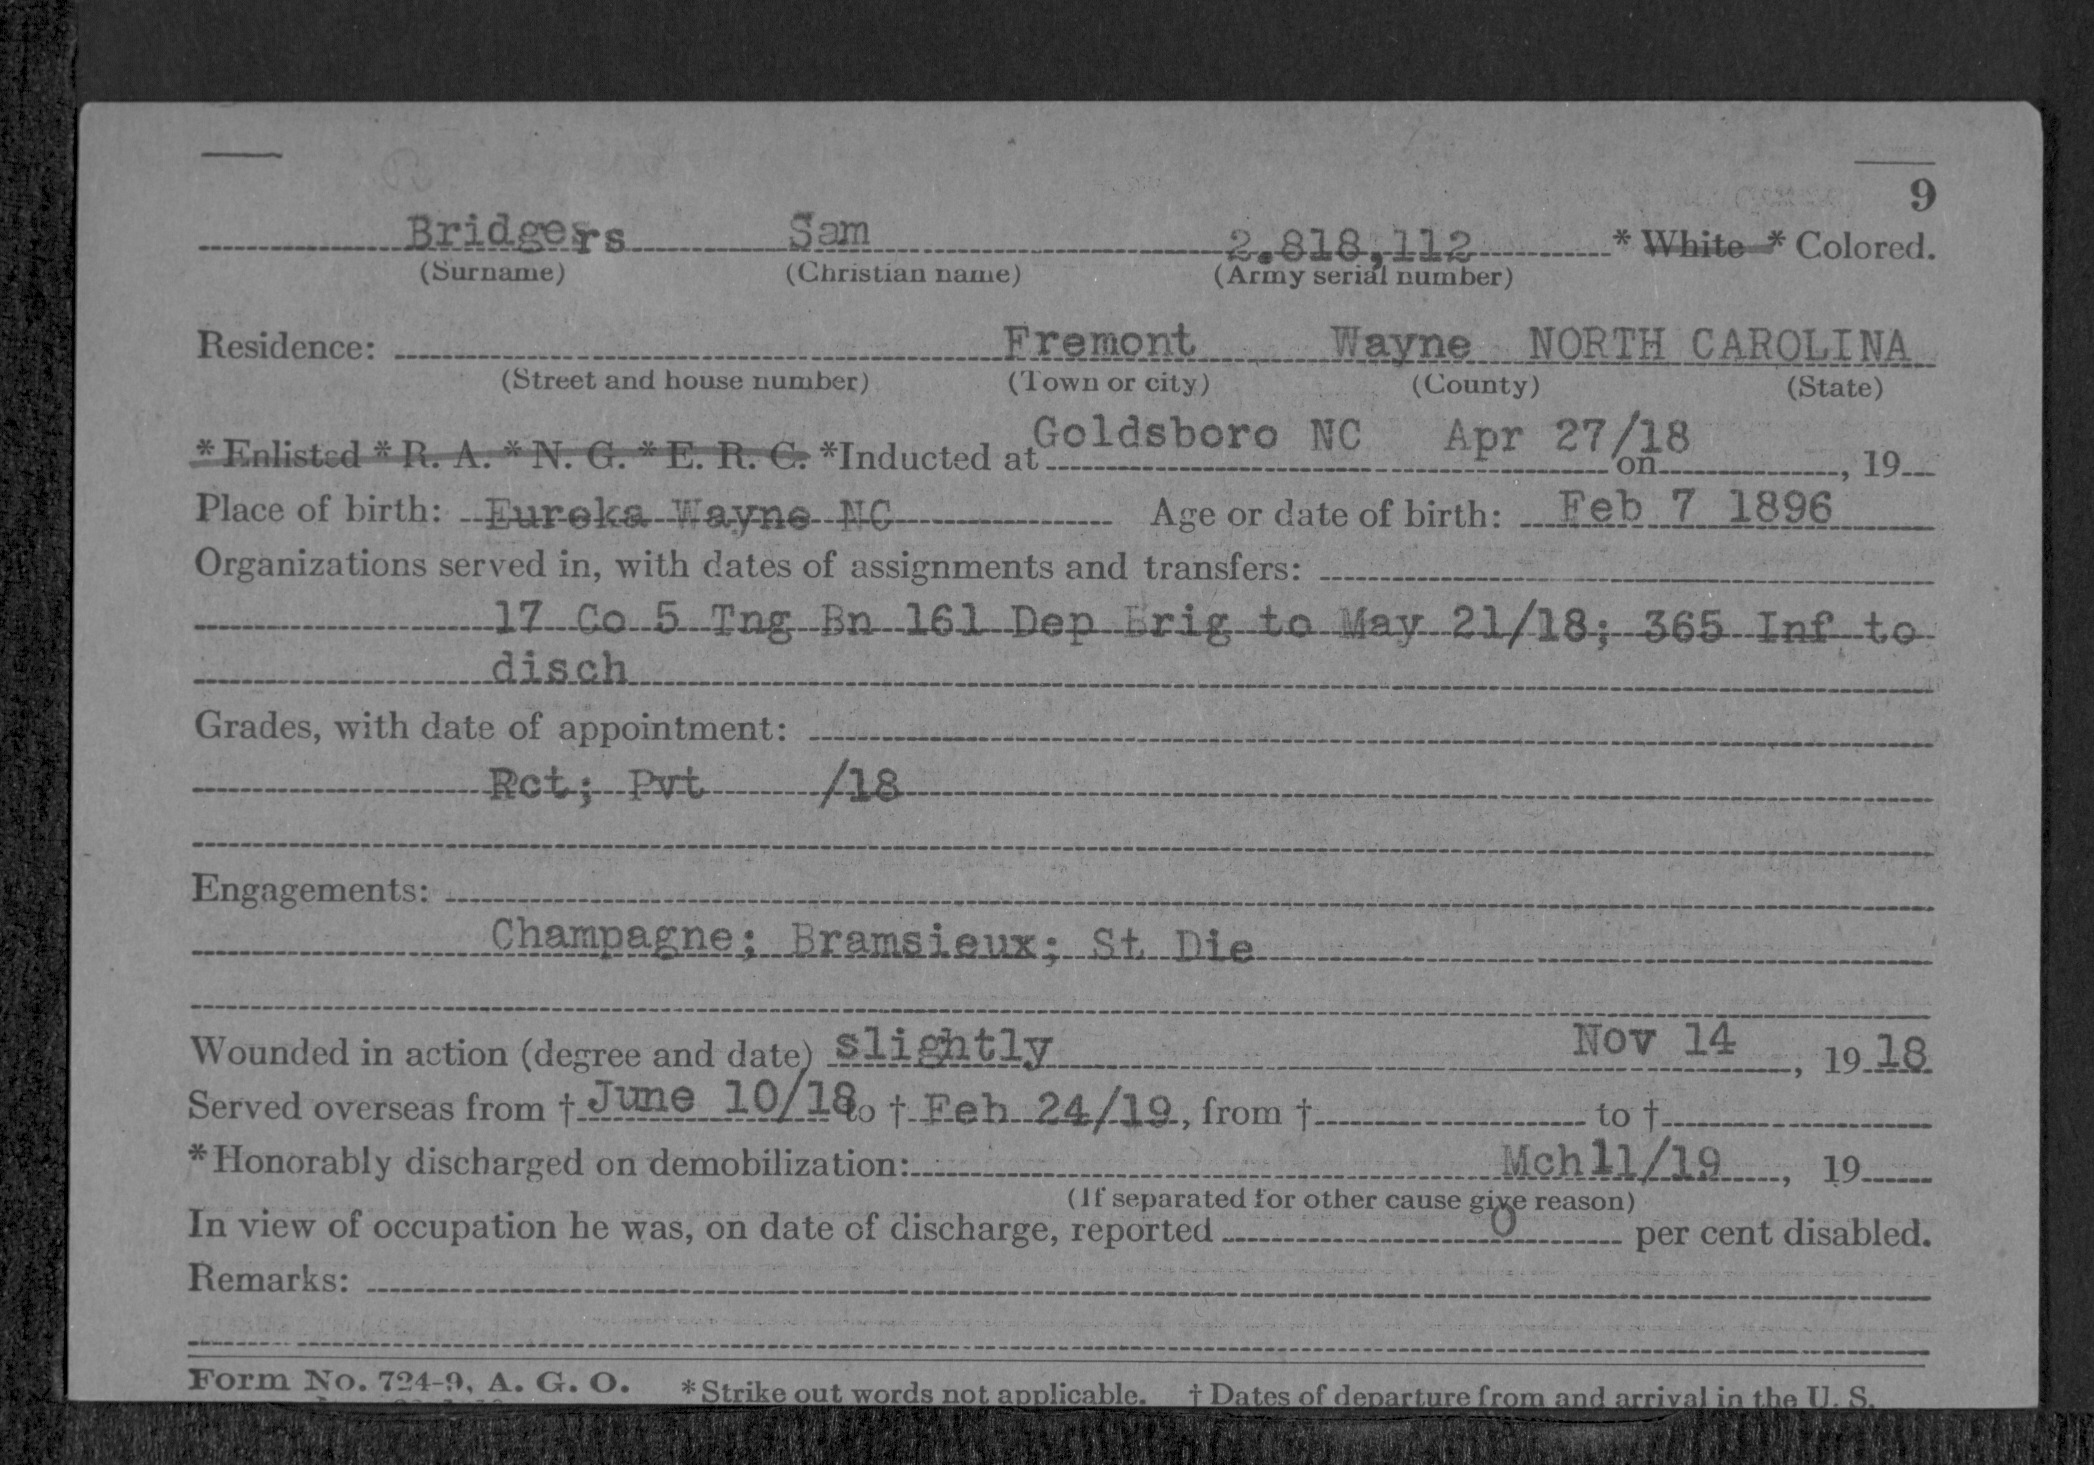 9
Bridgers Sam 2,818,112 * White * Colored.
(Surname) (Christian name) (Army serial number)
Residence: Fremont Wayne NORTH CAROLINA
(Street and house number) (Town or city) (County) (State)
* Enlisted * R. A. * N. G. * E. R. C. *Inducted at Goldsboro NC on Apr 27/18, 19
Place of birth: Eureka Wayne NC Age or date of birth: Feb 7 1896
Organizations served in, with dates of assignments and transfers:
17 Co 5 Tng Bn 161 Dep Brig to May 21/18; 365 Inf to
disch
Grades, with date of appointment:
Rct; Pvt /18
Engagements:
Champagne; Bramsieux; St Die
Wounded in action (degree and date) slightly Nov 14, 19 18
Served overseas from † June 10/18 to † Feb 24/19, from † to †
*Honorably discharged on demobilization: Mch11/19, 19
(If separated for other cause give reason)
In view of occupation he was, on date of discharge, reported 0 per cent disabled.
Remarks:
Form No. 724-9, A. G. O. *Strike out words not applicable. † Dates of departure from and arrival in the U. S.